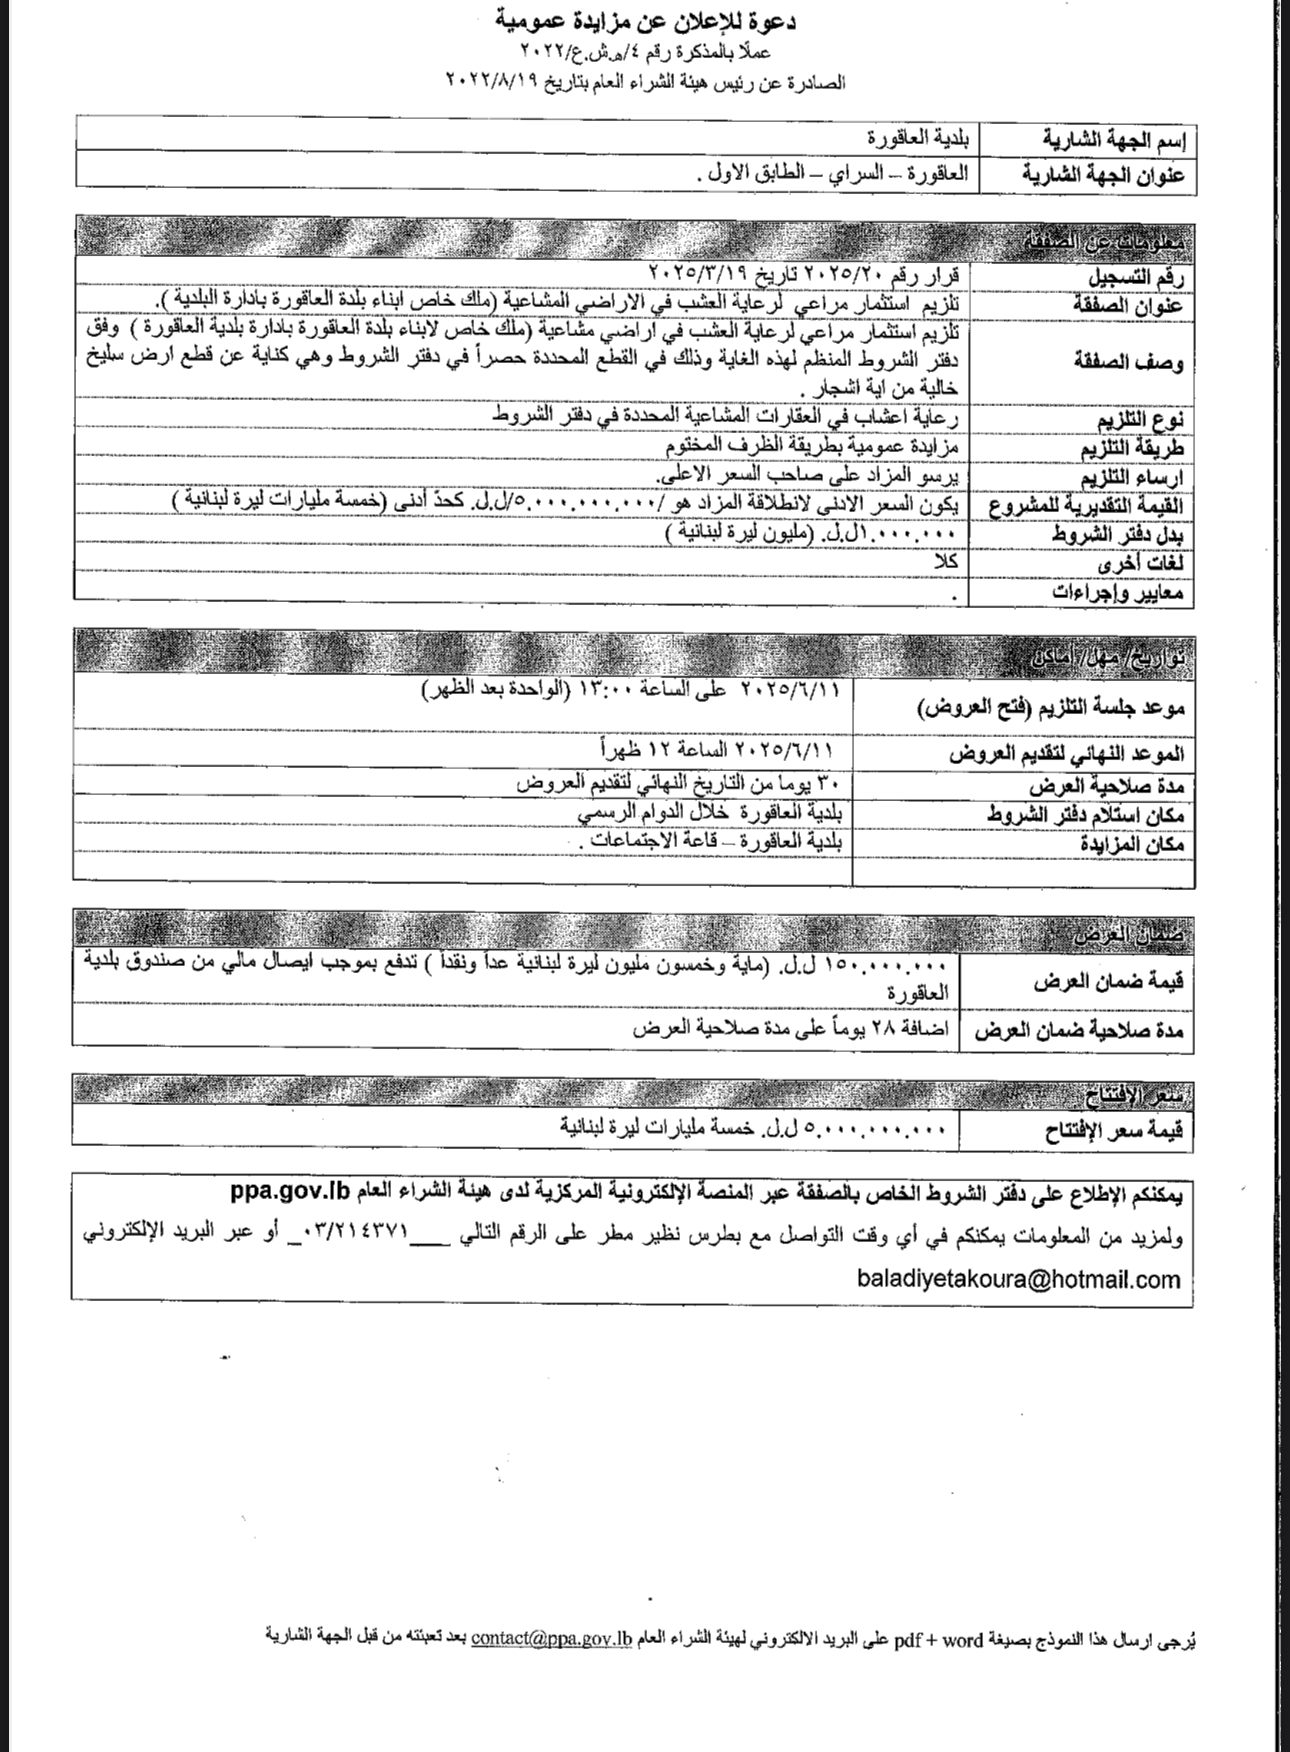 دعوة للإعلان عن مزايدة عمومية
عملًا بالمذكرة رقم ٤/ه.ش.ع/٢٠٢٢
الصادرة عن رئيس هيئة الشراء العام بتاريخ ٢٠٢٢/٨/١٩
إسم الجهة الشارية بلدية العاقورة
عنوان الجهة الشارية العاقورة – السراي – الطابق الاول .
معلومات عن الصفقة
رقم التسجيل قرار رقم ٢٠٢٥/٢٠ تاريخ ٢٠٢٥/٣/١٩
عنوان الصفقة تلزيم استثمار مراعي لرعاية العشب في الاراضي المشاعية (ملك خاص ابناء بلدة العاقورة بادارة البلدية ).
وصف الصفقة تلزيم استثمار مراعي لرعاية العشب في اراضي مشاعية (ملك خاص لابناء بلدة العاقورة بادارة بلدية العاقورة ) وفق
دفتر الشروط المنظم لهذه الغاية وذلك في القطع المحددة حصراً في دفتر الشروط وهي كناية عن قطع ارض سليخ
خالية من اية اشجار .
نوع التلزيم رعاية اعشاب في العقارات المشاعية المحددة في دفتر الشروط
طريقة التلزيم مزايدة عمومية بطريقة الظرف المختوم
ارساء التلزيم يرسو المزاد على صاحب السعر الاعلى.
القيمة التقديرية للمشروع يكون السعر الادنى لانطلاقة المزاد هو /٥.٠٠٠.٠٠٠.٠٠٠/ل.ل. كحدّ أدنى (خمسة مليارات ليرة لبنانية )
بدل دفتر الشروط ١.٠٠٠.٠٠٠ل.ل. (مليون ليرة لبنانية )
لغات أخرى كلا
معايير وإجراءات .
تواريخ/ مهل/ أماكن
موعد جلسة التلزيم (فتح العروض) ٢٠٢٥/٦/١١ على الساعة ١٣:٠٠ (الواحدة بعد الظهر)
الموعد النهائي لتقديم العروض ٢٠٢٥/٦/١١ الساعة ١٢ ظهراً
مدة صلاحية العرض ٣٠ يوما من التاريخ النهائي لتقديم العروض
مكان استلام دفتر الشروط بلدية العاقورة خلال الدوام الرسمي
مكان المزايدة بلدية العاقورة – قاعة الاجتماعات .
ضمان العرض
قيمة ضمان العرض ١٥٠.٠٠٠.٠٠٠ ل.ل. (ماية وخمسون مليون ليرة لبنانية عداً ونقداً ) تدفع بموجب ايصال مالي من صندوق بلدية
العاقورة
مدة صلاحية ضمان العرض اضافة ٢٨ يوماً على مدة صلاحية العرض
سعر الإفتتاح
قيمة سعر الإفتتاح ٥.٠٠٠.٠٠٠.٠٠٠ ل.ل. خمسة مليارات ليرة لبنانية
يمكنكم الإطلاع على دفتر الشروط الخاص بالصفقة عبر المنصة الإلكترونية المركزية لدى هيئة الشراء العام ppa.gov.lb
ولمزيد من المعلومات يمكنكم في أي وقت التواصل مع بطرس نظير مطر على الرقم التالي ___٠٣/٢١٤٣٧١_ أو عبر البريد الإلكتروني
baladiyetakoura@hotmail.com
يُرجى ارسال هذا النموذج بصيغة pdf + word على البريد الالكتروني لهيئة الشراء العام contact@ppa.gov.lb بعد تعبئته من قبل الجهة الشارية